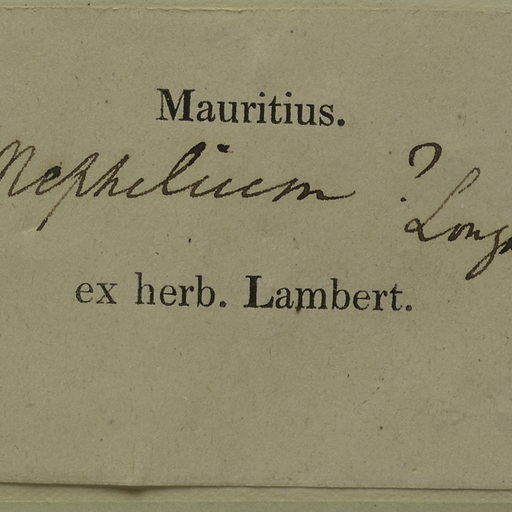 Mauritius.
Nephelium ?
ex herb. Lambert.